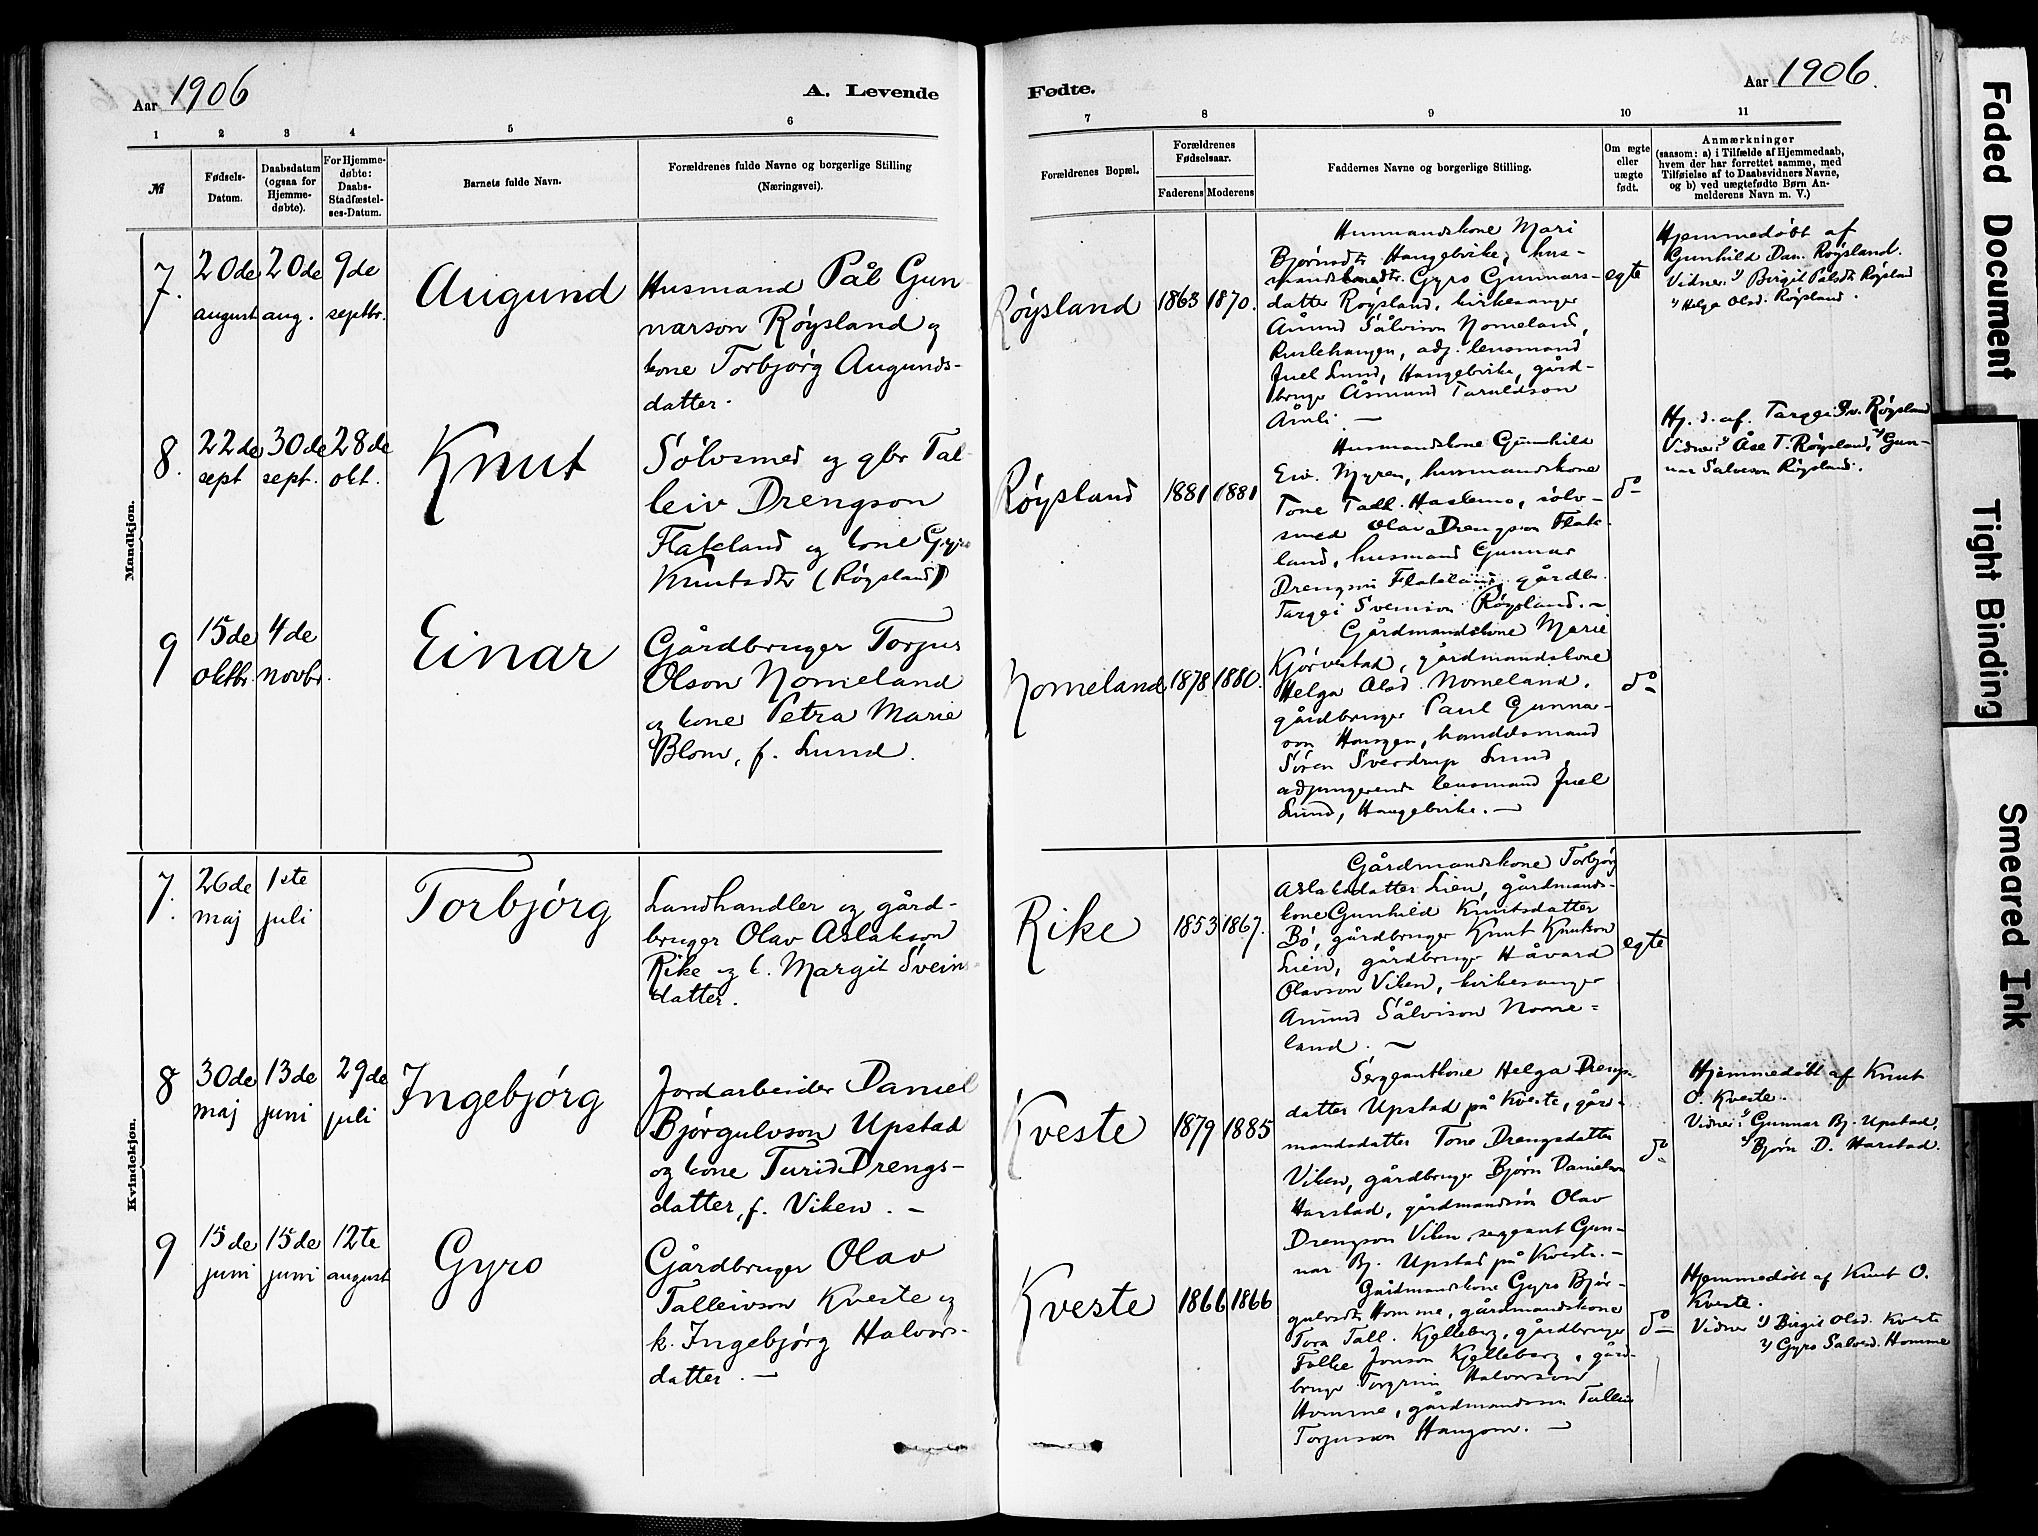 Aar 1906
A. Levende
1 2 3 4 5 6
№
Fødsels-
Datum.
Daabsdatum
(ogsaa for
Hjemme-
døbte).
For Hjemme-
døbte:
Daabs-
Stadfæstel-
ses-Datum.
Barnets fulde Navn.
Forældrenes fulde Navne og borgerlige Stilling
(Næringsvei).
Mandkjøn.
7.
20de
august
20de
aug.
9de
septbr.
Augund
Husmand Pål Gun
narson Røysland og
kone Torbjørg Augunds-
datter.
8.
22de
sept
30de
sept.
28de
okt.
Knut
Sølvsmed og gbr Tal
leiv Drengson
Flateland og kone Gyro
Knutsdtr (Røysland)
9
15de
oktbr.
4de
novbr.
Einar
Gårdbruger Torjus
Olson Nomeland
og kone Petra Marie
Blom, f. Lund.
Kvindekjøn.
7.
26de
maj
1ste
juli
Torbjørg
Landhandler og gård-
bruger Olav Aslakson
Rike og k. Margit Sveins-
datter.
8
30de
maj
13de
juni
29de
juli
Ingebjørg
Jordarbeider Daniel
Bjørgulvson Upstad
og kone Turid Drengs-
datter, f. Viken. —
9
15de
juni
15de
juni
12te
august
Gyro
Gårdbruger Olav
Talleivson Kveste og
k. Ingebjørg Halvors-
datter. —
Fødte.
Aar 1906.
7 8 9 10 11
Forældrenes Bopæl.
Forældrenes
Fødselsaar.
Faderens Moderens
Faddernes Navne og borgerlige Stilling.
Om ægte
eller
uægte
født.
Anmærkninger
(saasom: a) i Tilfælde af Hjemmedaab,
hvem der har forrettet samme, med
Tilføielse af to Daabsvidners Navne,
og b) ved uægtefødte Børn An-
melderens Navn m. V.)
Røysland 1863 1870.
Husmandskone Mari
Bjørnsdtr Haugebirke, hus-
mandskone Gyro Gunnars-
datter Røysland, kirkesanger
Åmund Sålvison Nomeland,
adj. lensmand
Juel Lund, Haugebirke, gård-
bruger Åsmund Taraldson
Åmli. —
egte
Hjemmedøbt af
Gunhild Dan. Røysland.
Vidner 1) Birgit Pålsdtr Røysland
2) Helga Olsd. Røysland.
Røysland 1881 1881
Husmandskone Gunhild
Eiv. Myren, husmandskone
Tone Tall. Haslemo, sølv-
smed Olav Drengson Flate-
land, husmand Gunnar
Drengson Flateland, gårdbr.
Targei Sveinson Røysland. —
do
Hj. d. af. Targei Sv. Røysland
Vidner: 1) Åse T. Røysland, 2) Gun-
nar Salveson Røysland.
Nomeland 1878 1880.
Gårdmandskone Marie
Kjørvestad, gårdmandskone
Helga Olsd. Nomeland,
gårdbruger Paul Gunnar-
son Haugen, handelsmand
Søren Sverdrup Lund,
adjungerende lensmand Juel
Lund, Haugebirke. —
do
Rike 1853 1867.
Gårdmandskone Torbjørg
Aslaksdatter Lien, gårdmands-
kone Gunhild Knutsdatter
Bø, gårdbruger Knut Knutson
Lien, gårdbruger Håvard
Olavson Viken, kirkesanger
Åmund Sålvison Nome-
land. —
egte
Kveste 1879 1885
Sergeantkone Helga Drengs-
datter Upstad på Kveste, går-
mandsdatter Tone Drengsdatter
Viken, gårdbruger Bjørn Danielson
Harstad, gårdmandsøn Olav
Drengson Viken, sergeant Gun-
nar Bj. Upstad på Kveste. —
do
Hjemmedøbt af Knut
O. Kveste.
Vidner: 1) Gunnar Bj. Upstad,
2) Bjørn D. Harstad.
Kveste 1866 1866
Gårdmandskone Gyro Bjør-
gulvsdtr Homme, gårdmandskone
Tora Tall. Kjelleberg, gårdbruger
Folke Jonson Kjelleberg, gård-
bruger Torgrim Halvorson
Homme, gårdmandsson Talleiv
Torjusson Haugom. —
do
Hjemmedøbt af Knut O.
Kveste.
Vidner 1) Birgit Olsd. Kveste
2) Gyro Salvesd. Homme
Faded Document
Tight Binding
Smeared Ink